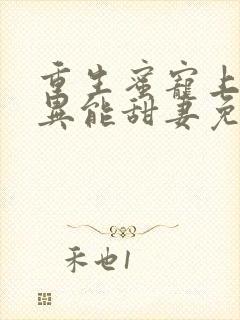 重生蜜宠上
异能甜妻免
禾也1